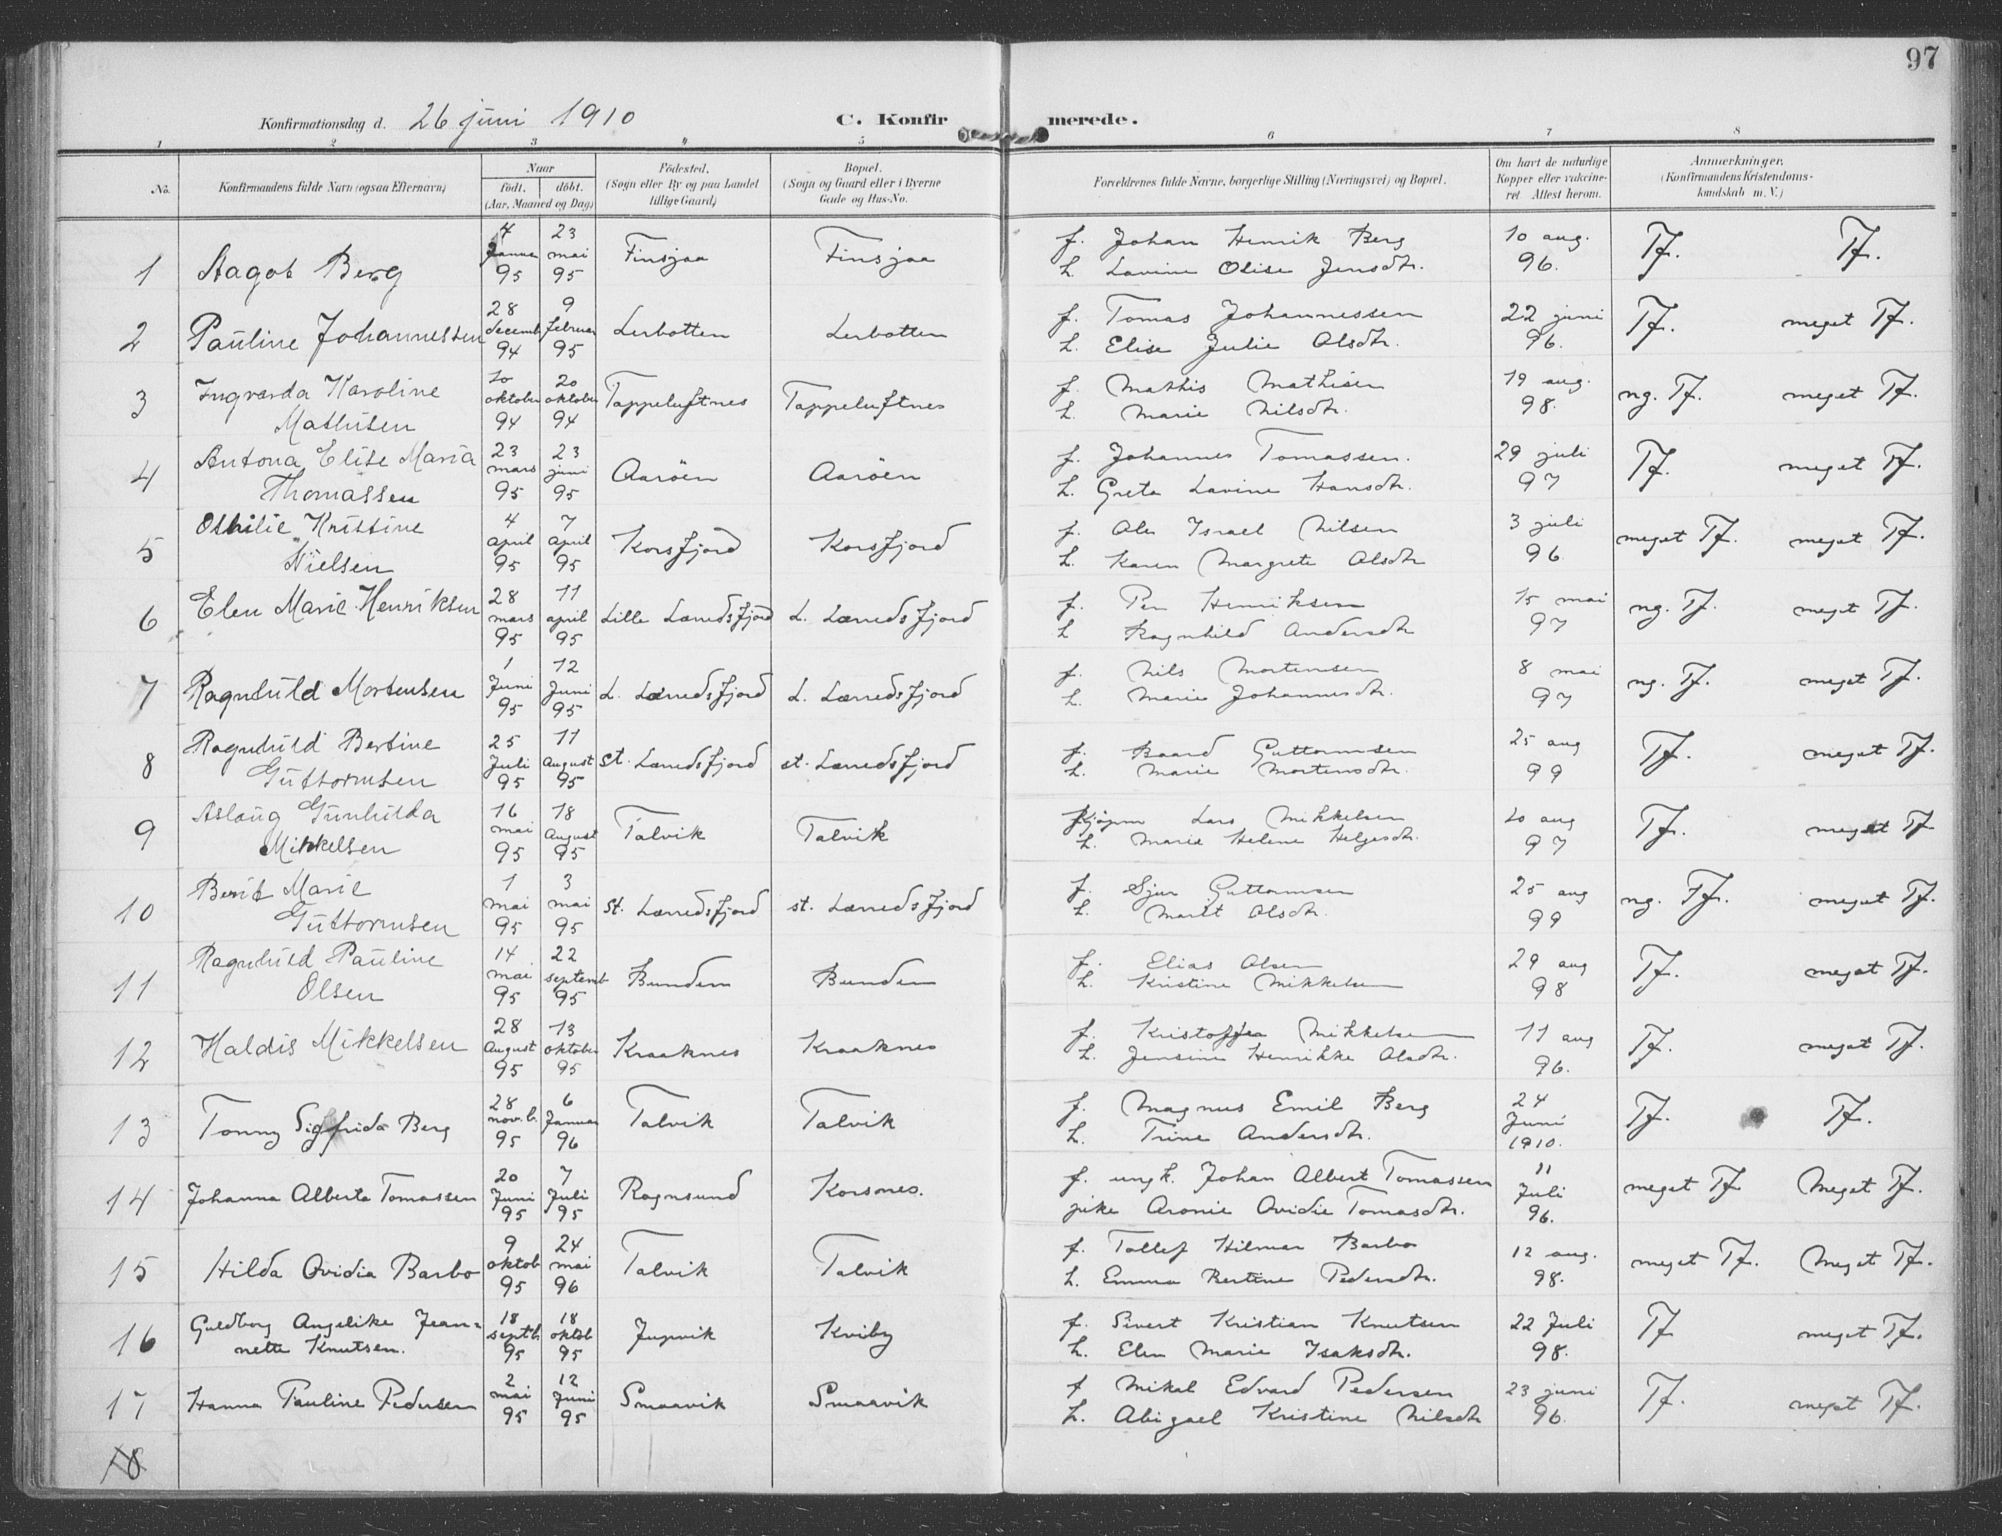 97
Konfirmationsdag d. 26 juni 1910 C. Konfirmerede.
1 2 3 4 5 6 7 8
No. Konfirmandens fulde Navn (ogsaa Efternavn)
Naar
födt. döbt.
(Aar, Maaned og Dag)
Födested.
(Sogn eller By og paa Landet
tillige Gaard)
Bopæl.
(Sogn og Gaard eller i Byerne
Gade og Hus-No.
Forældrenes fulde Navne, borgerlige Stilling (Næringsvei) og Bopæl.
Om havt de naturlige
Kopper eller vakcine-
ret Attest herom.
Anmærkninger.
(Konfirmandens Kristendoms-
kundskab m. V.)
1 Aagot Berg 4 Janua 95 23 mai 95 Finsjaa Finsjaa f. Johan Henrik Berg 10 aug. 96. Tf. Tf.
h. Lavine Olise Jensdtr.
2 Pauline Johannessen 28 decemb 94 9 februar 95 Lerbotten Lerbotten f. Tomas Johannessen 22 juni 96. Tf. meget Tf.
h. Elise Julie Olsdtr.
3 Ingvarda Karoline 10 oktober 94 20 oktober 94 Tappeluftnes Tappeluftnes f. Mathis Mathisen 19 aug. 98. ng. Tf. meget Tf.
Mathisen h. Marie Nilsdtr.
4 Antona Elise Maria 23 mars 95 23 juni 95 Aaröen Aaröen f. Johannes Tomassen. 29 juli 97 Tf. meget Tf.
Thomassen h. Greta Lavine Hansdtr.
5 Othilie Kristine 4 april 95 7 april 95 Korsfjord Korsfjord f. Ole Israel Nilsen 3 juli 96 meget Tf. meget Tf.
Nielsen h. Karen Margrete Olsdtr
6 Elen Marie Henriksen 28 mars 95 11 april 95 Lille Læredsfjord L. Læredsfjord f. Per Henriksen 15 mai 97 ng. Tf. meget Tf.
h Ragnhild Andersdtr
7 Ragnhild Mortensen 1 Juni 95 12 Juni 95 L. Læredsfjord L. Læredsfjord f. Nils Mortensen 8 mai 97 ng. Tf. meget Tf.
h. Marie Johannesdtr.
8 Ragnhild Bertine 25 Juli 95 11 August 95 St. Læredsfjord st. Læredsfjord f. Baard Guttormsen 25 aug 99 Tf. meget Tf.
Guttormsen h. Marie Mortensdtr.
9 Aslaug Gunhilda 16 mai 95 18 August 95 Talvik Talvik Kjøpm Lars Mikkelsen 20 aug 97 Tf. meget Tf
Mikkelsen h. Marie Helene Helgesdtr.
10 Berit Marie 1 mai 95 3 mai 95 St. Læredsfjord st. Læredsfjord f. Sjur Guttormsen 25 aug 99 ng. Tf. meget Tf.
Guttormsen h. Marit Olsdtr.
11 Ragnhild Pauline 14 mai 95 22 septemb 95 Bunden Bunden f. Elias Olsen 29 aug 98 Tf. meget Tf.
Olsen h. Kristine Mikkelsen
12 Haldis Mikkelsen 28 August 95 13 oktober 95 Kraaknes Kraaknes f. Kristoffer Mikkelsen 11 aug 96. Tf. meget Tf.
h. Jensine Henrikke Olsdtr.
13 Tonny Sigfrida Berg 28 nov.b. 95 6 Januar 96 Talvik Talvik f. Magnus Emil Berg 24 Juni 1910. Tf. Tf.
h. Trine Andersdtr.
14 Johanna Alberta Tomassen 20 Juni 95 7 Juli 95 Rognsund Korsnes. f. ungk. Johan Albert Tomassen 11 Juli 96. meget Tf. Meget Tf.
pike Aronie Ovidie Tomasdtr.
15 Hilda Ovidia Barbo 9 oktob 95 24 mai 96 Talvik Talvik f. Tollef Hilmar Barbo 12 aug. 98. meget Tf. Meget Tf.
h. Emma Bertine Pedersdtr.
16 Guldborg Angelike Jean= 18 septb. 95 18 oktob 95 Jupvik Kviby f. Sivert Kristian Knutsen 22 Juli 98. Tf meget Tf.
nette Knutsen. h. Elen Marie Isaksdtr.
17 Hanna Pauline Pedersen 2 mai 95 12 Juni 95 Smaavik Smaavik f Mikal Edvard Pedersen 23 juni 96. Tf. meget Tf.
h. Abigael Kristine Nilsdtr
18